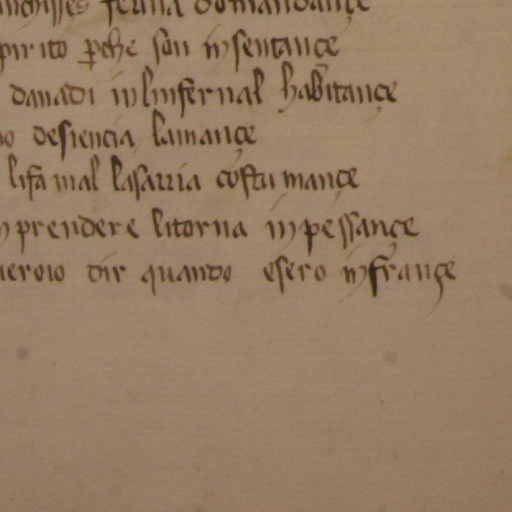 domandançe
pirito p̱che son in sentançe
danadi in linfernal habitançe
no de siencia lamançe
li fa mal la sarria costumançe
prendere li torna in pessançe
dir quando e sero in françe